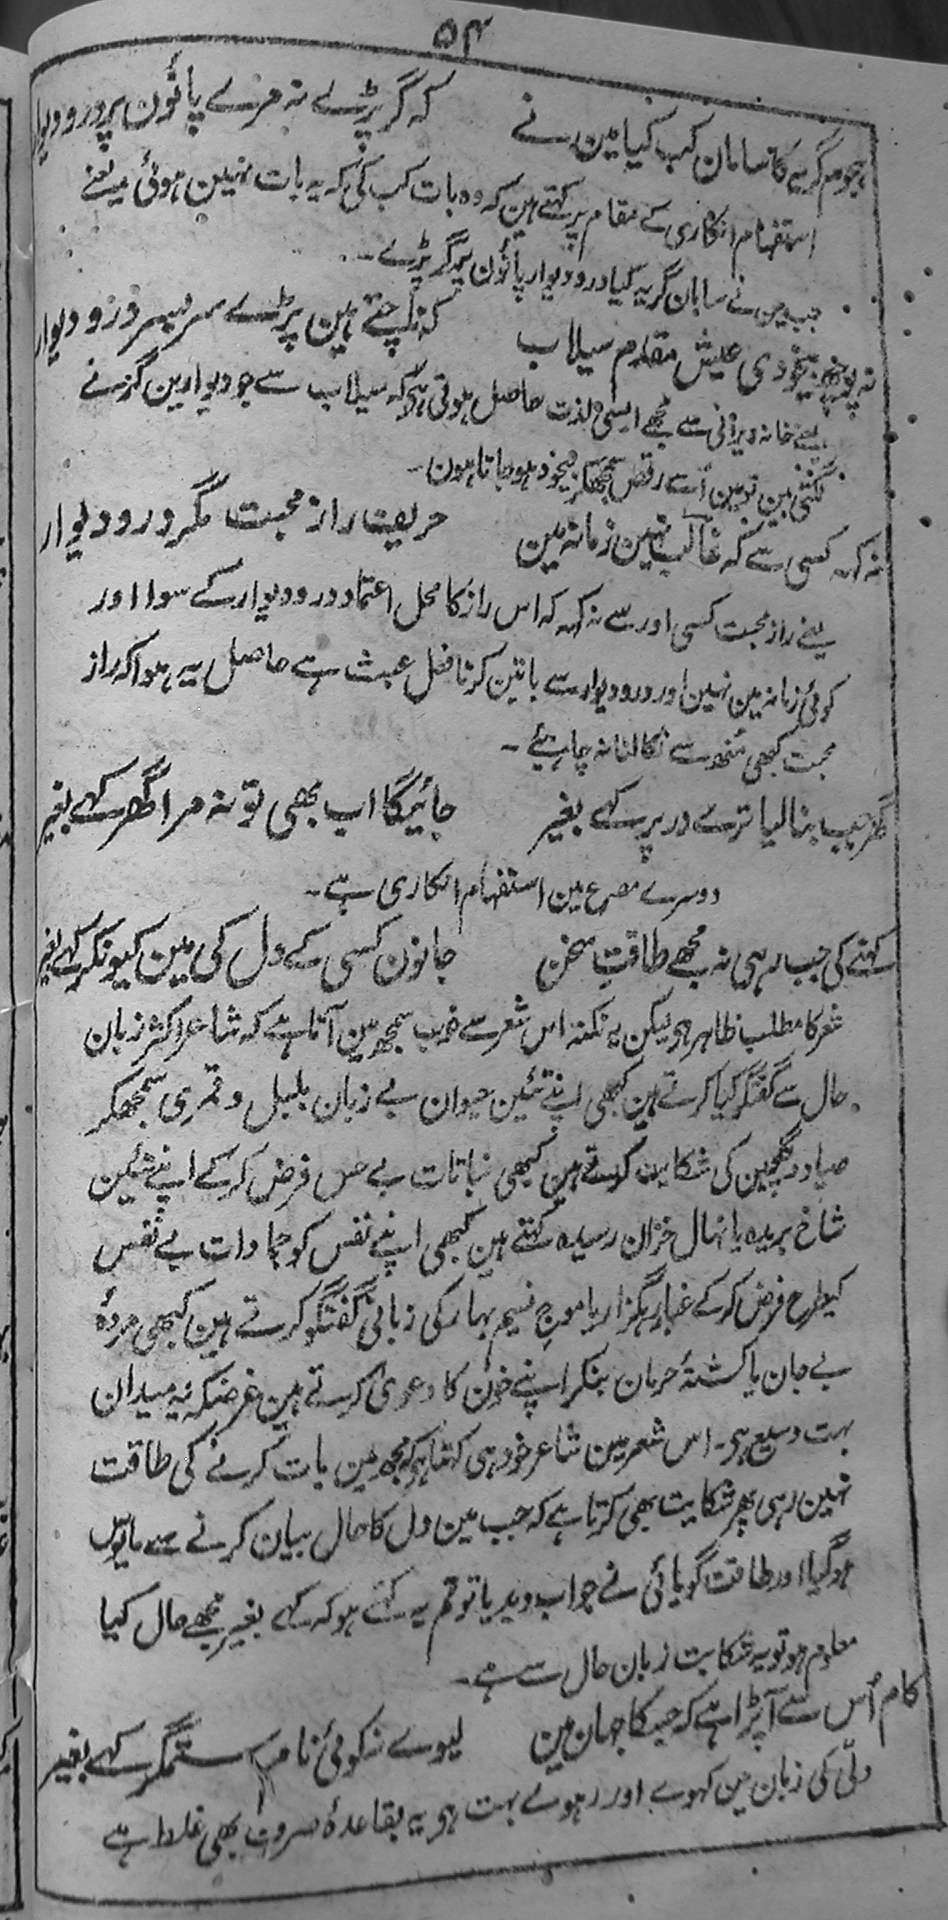 ۵۴
ہجوم گریہ کا سامان کب کیا مین نے کہ گر پڑے نہ مرے پانون پر در و دیوار
استفہام انکاری کے مقام پر کہتے ہین کہ وہ بات کب کی کہ یہ بات نہین ہوئی یعنے
جب مین نے سامان گریہ کیا در و دیوار پانون پر گر پڑے ۔
نہ پوچھ بیخودی عیش مقدم سیلاب کہ ناچتے ہین پڑے سر بسر در و دیوار
یعنے خانہ ویرانی سے مجھے ایسی لذت حاصل ہوتی ہے کہ سیلاب سے جو دیوارین گرنے
لگتی ہین تو مین اُسے رقص سمجھکر بیخود ہو جاتا ہون ۔
نہ کہہ کسی سے کہ غالب نہین زمانہ مین حریف راز محبت مگر در و دیوار
یعنے راز محبت کسی اور سے نہ کہہ کہ اس راز کا محل اعتماد در و دیوار کے سوا اور
کوئی زمانہ مین نہین اور در و دیوار سے باتین کرنا فعل عبث ہے حاصل یہ ہوا کہ راز
محبت کبھی مُنھ سے نکالنا نہ چاہیئے ۔
گھر جب بنا لیا ترے در پر کہے بغیر جائیگا اب بھی تو نہ مرا گھر کہے بغیر
دوسرے مصرع مین استفہام انکاری ہے ۔
کہتے کی جب رہی نہ مجھے طاقتِ سخن جانون کسی کے دل کی مین کیونکر کہے بغیر
شعر کا مطلب ظاہر ہو لیکن یہ نکتہ اس شعر سے خوب سمجھ مین آتا ہے کہ شاعر اکثر زبان
حال سے گفتگو کیا کرتے ہین کبھی اپنے تئین حیوان بے زبان بلبل و قمری سمجھکر
صیاد و گلچین کی شکایت کرتے ہین کبھی نباتات بے حس فرض کر کے اپنے تئین
شاخ بریدہ یا نہال خزان رسیدہ کہتے ہین کبھی اپنے نفس کو جمادات بے نفس
کیطرح فرض کر کے غبار رہگزار یا موجِ نسیم بہار کی زبانی گفتگو کرتے ہین کبھی مردۂ
بے جان یا کشتۂ حرمان بنکر اپنے خون کا دعوی کرتے ہین غرضکہ یہ میدان
بہت وسیع ہی ۔ اس شعر مین شاعر خود ہی کہتا ہی کہ مجھ مین بات کرنے کی طاقت
نہین رہی پھر شکایت بھی کرتا ہے کہ جب مین دل کا حال بیان کرنے سے مایوس
ہو گیا اور طاقت گویائی نے جواب دیدیا تو تم یہ کہتے ہو کہ کہے بغیر مجھے حال کیا
معلوم ہو تو یہ شکایت زبان حال سے ہے ۔
کام اُس سے آ پڑا ہے کہ جسکا جہان مین لیوے نہ کوئی نام ستمگر کہے بغیر
دلّی کی زبان مین کہوے اور رہوے بہت ہی یہ بقاعدۂ صروف بھی غلط ہے